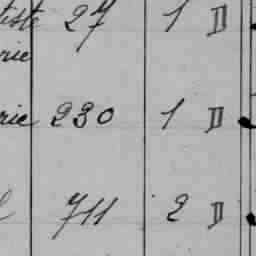 tiste 27 1 D
rie
rie 230 1 D
711 2 D